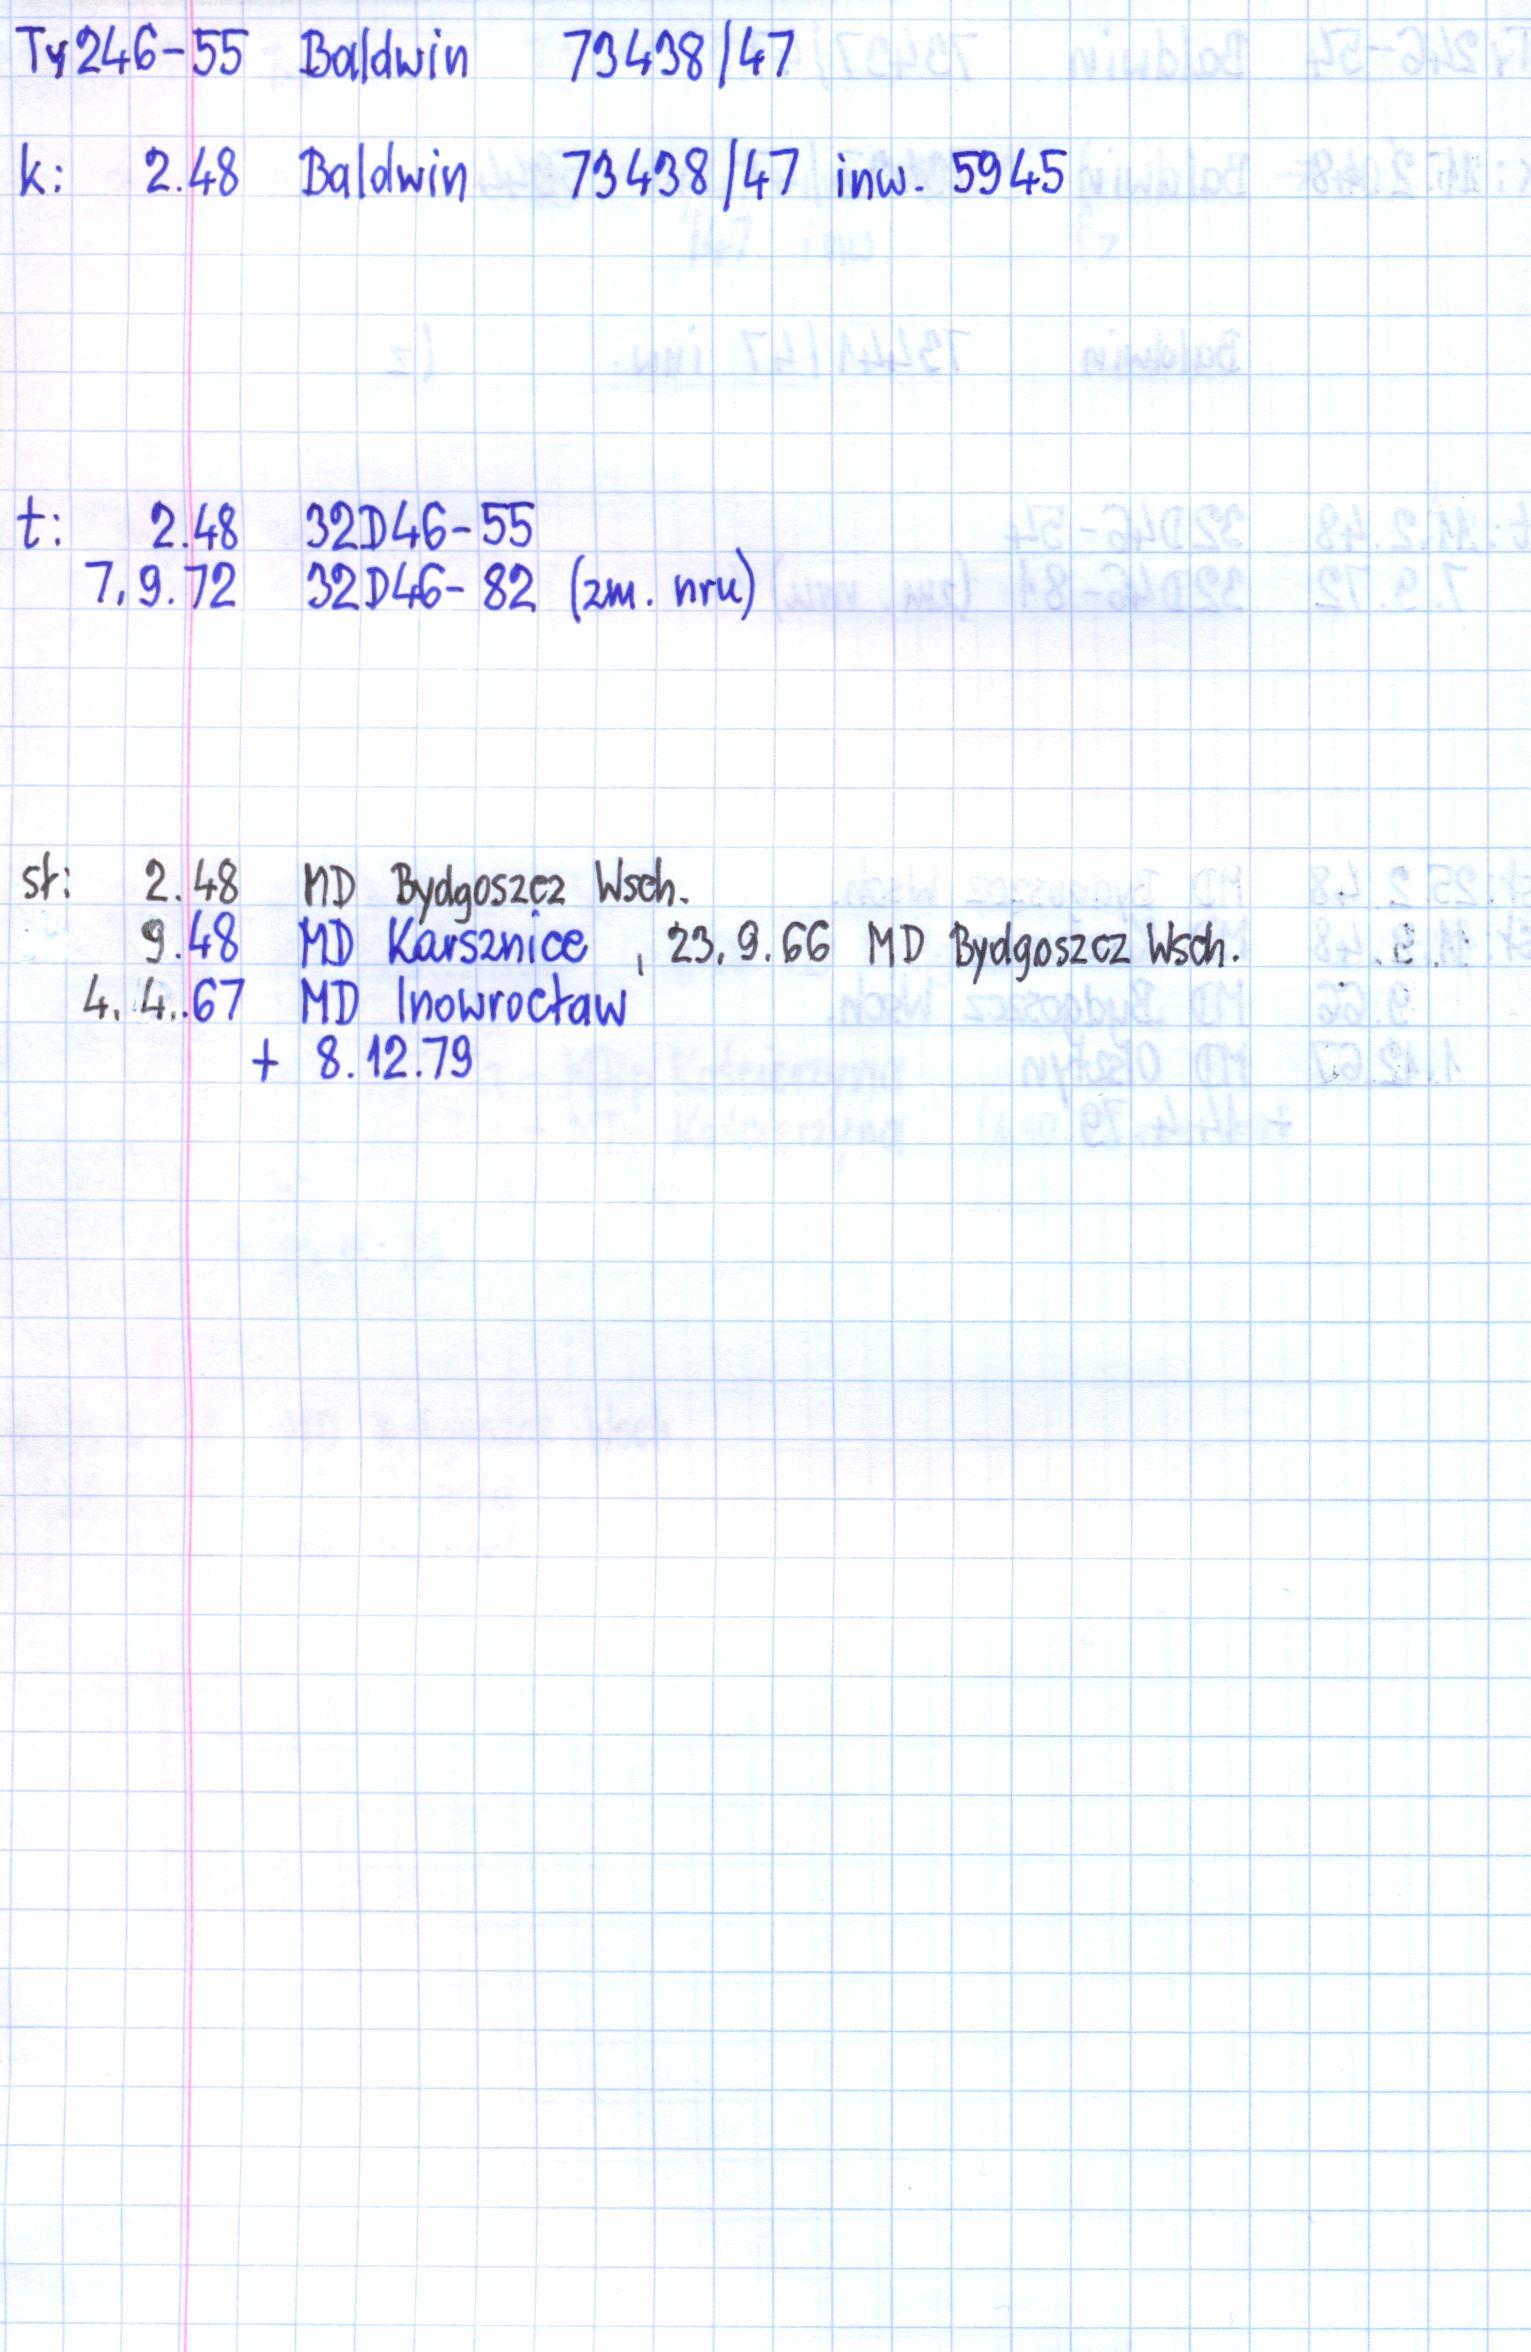 Ty246-55 Baldwin 73438/47
k: 2.48 Baldwin 73438/47 inw. 5945
t: 2.48 32D46-55
7.9.72 32D46-82 (zm. nru)
st: 2.48 MD Bydgoszcz Wsch.
9.48 MD Karsznice, 23.9.66 MD Bydgoszcz Wsch.
4.4.67 MD Inowrocław
+ 8.12.79